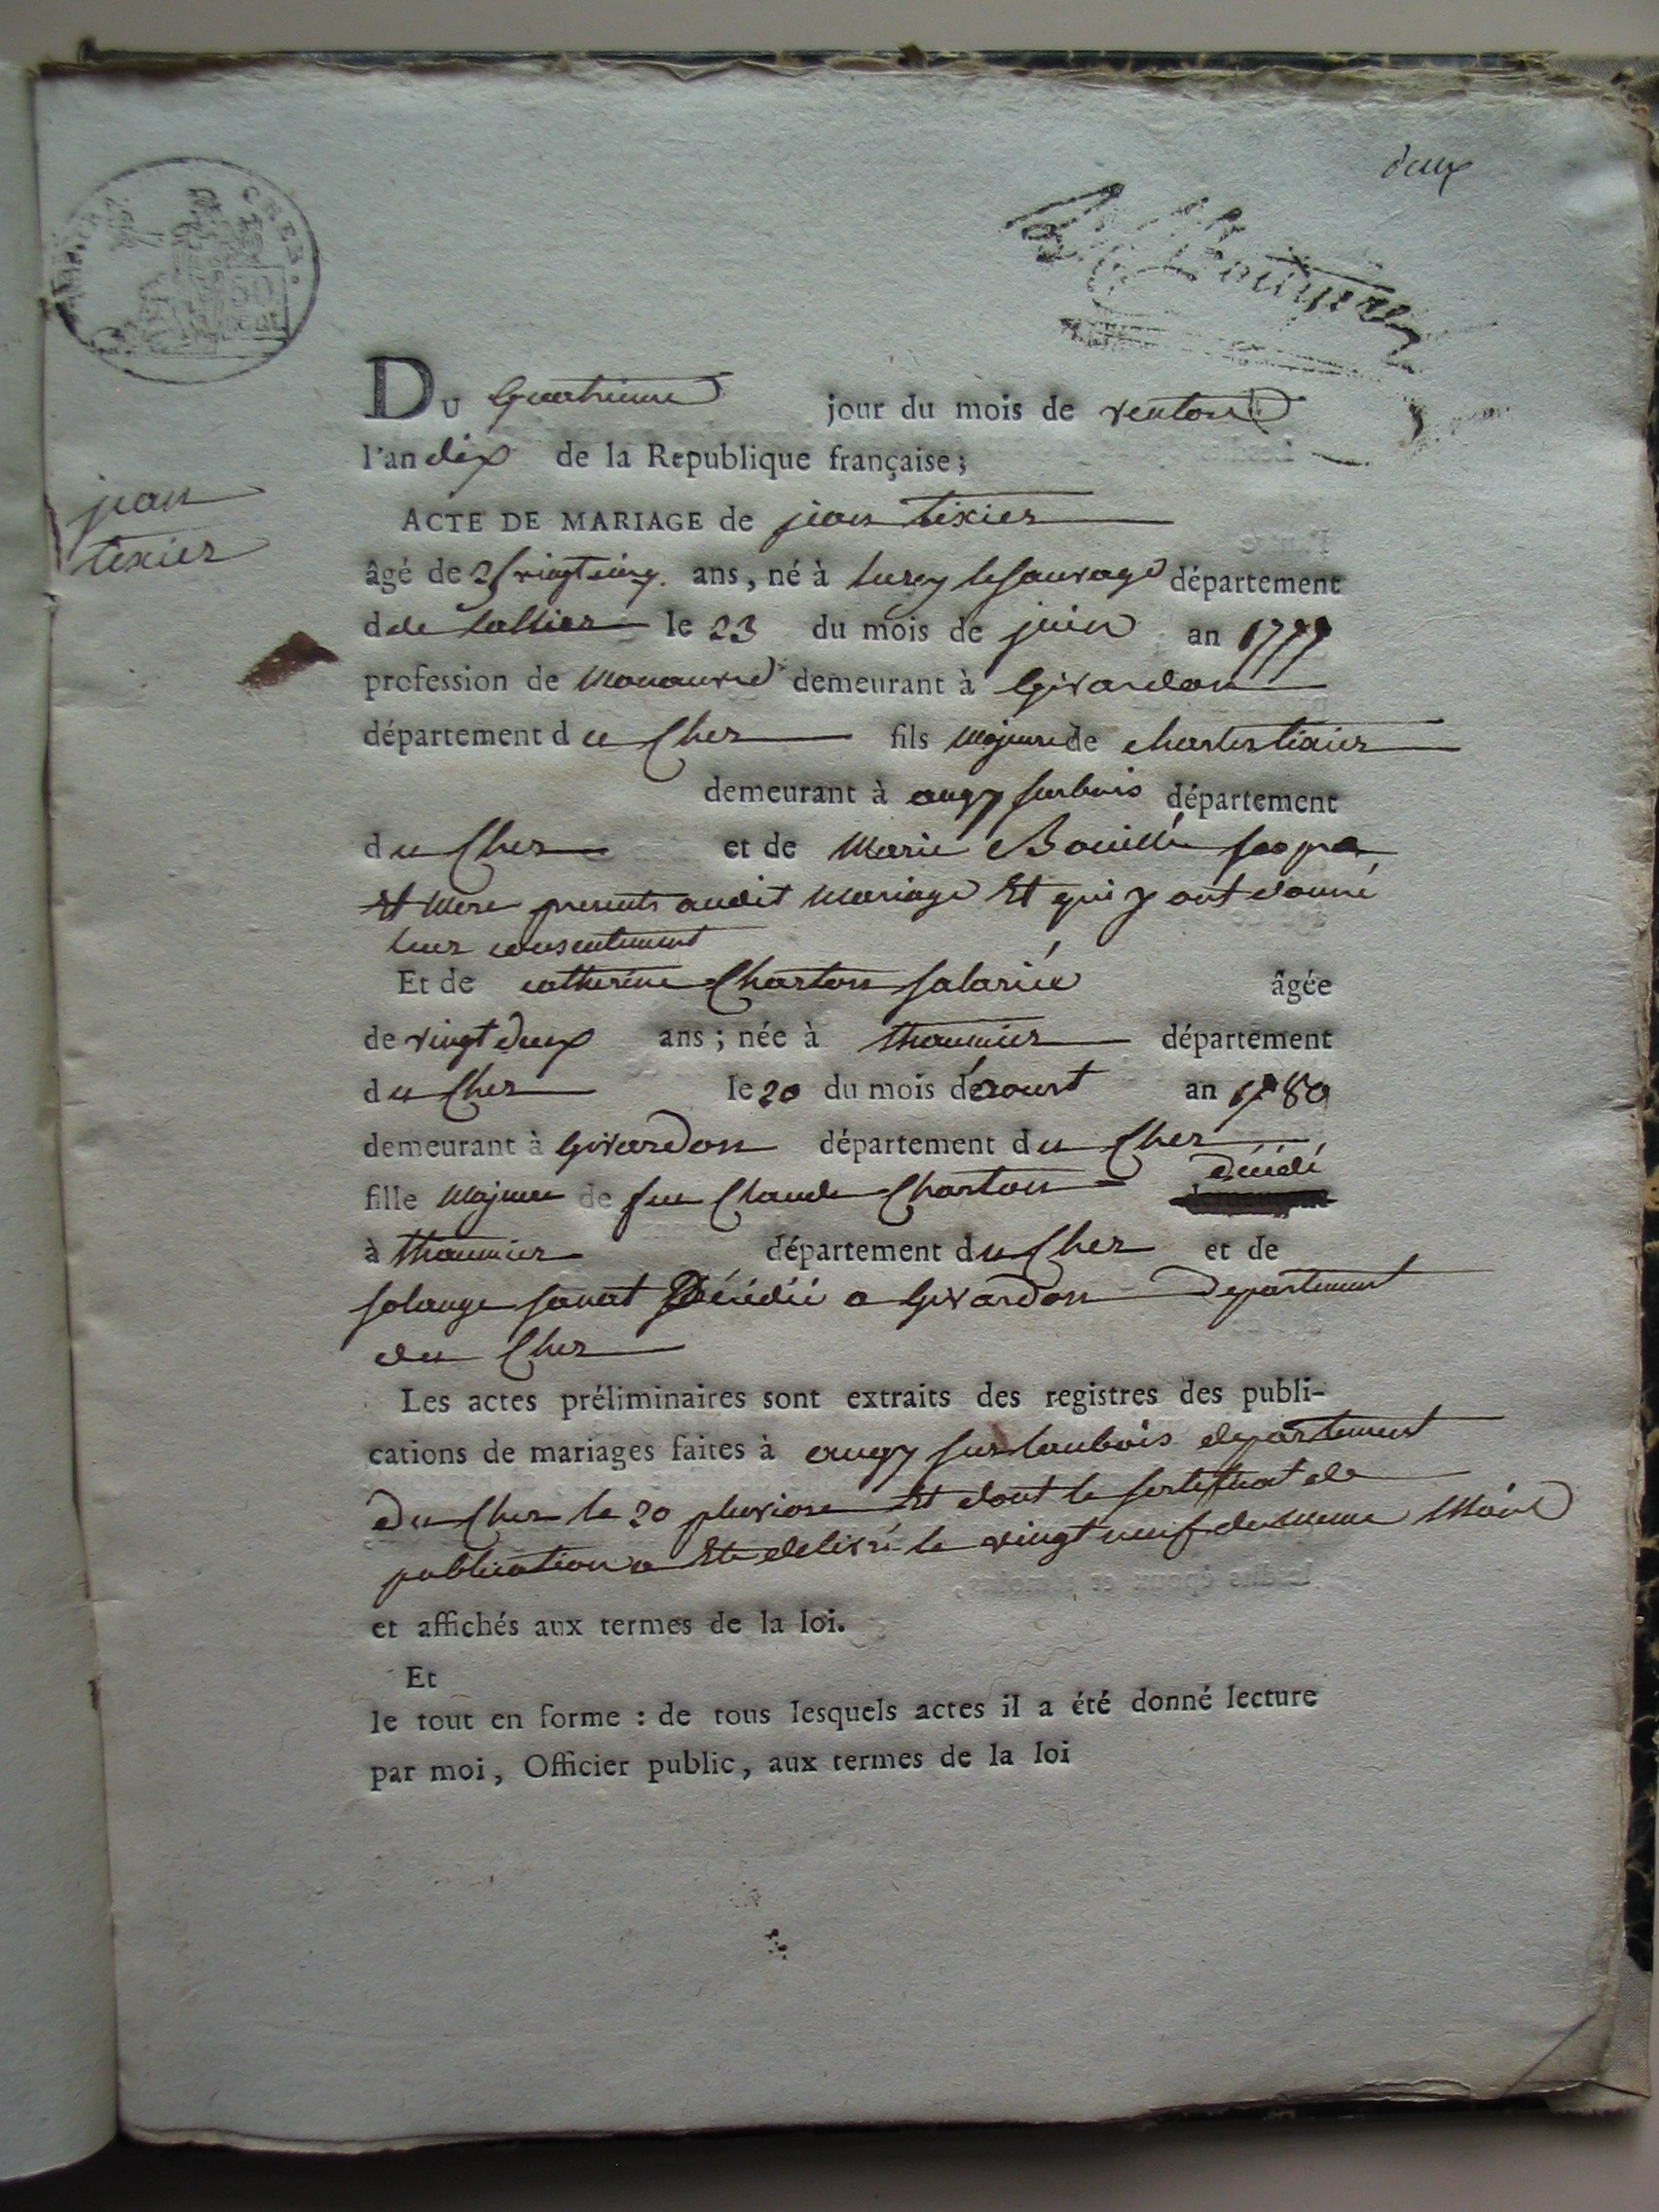 deux
CHER.
50
cent
DU quatrieme jour du mois de ventose
l'an dix de la Republique française;
jean
texier
ACTE DE MARIAGE de jean texier
âgé de 25 vingt cinq ans, né à lurcy le sauvage département
d de lallier le 23 du mois de juin an 1777
profession de manauvre demeurant à Givardon
département du Cher fils majeure de charles tixier
demeurant à augy sur bois département
du Cher et de Marie Bouillé ses pere
et mere presents audit mariage et qui y ont donné
leur consentement
Et de catherine Charton salariée âgée
de vingt deux ans; née à thaumier département
du Cher le 20 du mois de aoust an 1780
demeurant à Givardon département du Cher
fille majeure de feu Claude Charton décédé
à thaumier département du Cher et de
solange sanat décédée a Givardon departement
du Cher
Les actes préliminaires sont extraits des registres des publi-
cations de mariages faites à augy sur laubois departement
du Cher le 20 pluviose et dont le sertificat de
publication a ete delivré le vingt neuf du meme mois
et affichés aux termes de la loi.
Et
le tout en forme : de tous lesquels actes il a été donné lecture
par moi, Officier public, aux termes de la loi